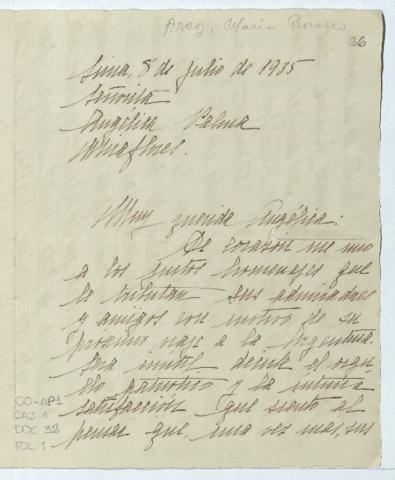 Araoz, María Rosario
36
Lima, 8 de julio de 1935
Señorita
Angélica Palma
Miraflores.
Muy querida Angélica:
De corazón me uno
a los justos homenajes que
le tributan sus admiradores
y amigos con motivo de su
próximo viaje a la Argentina.
Será inútil decirle el orgu-
llo patriótico y la íntima
satisfacción que siento al
pensar que, una vez mas, sus
CO-AP1
CAJ 1
DOC 32
FOL 1